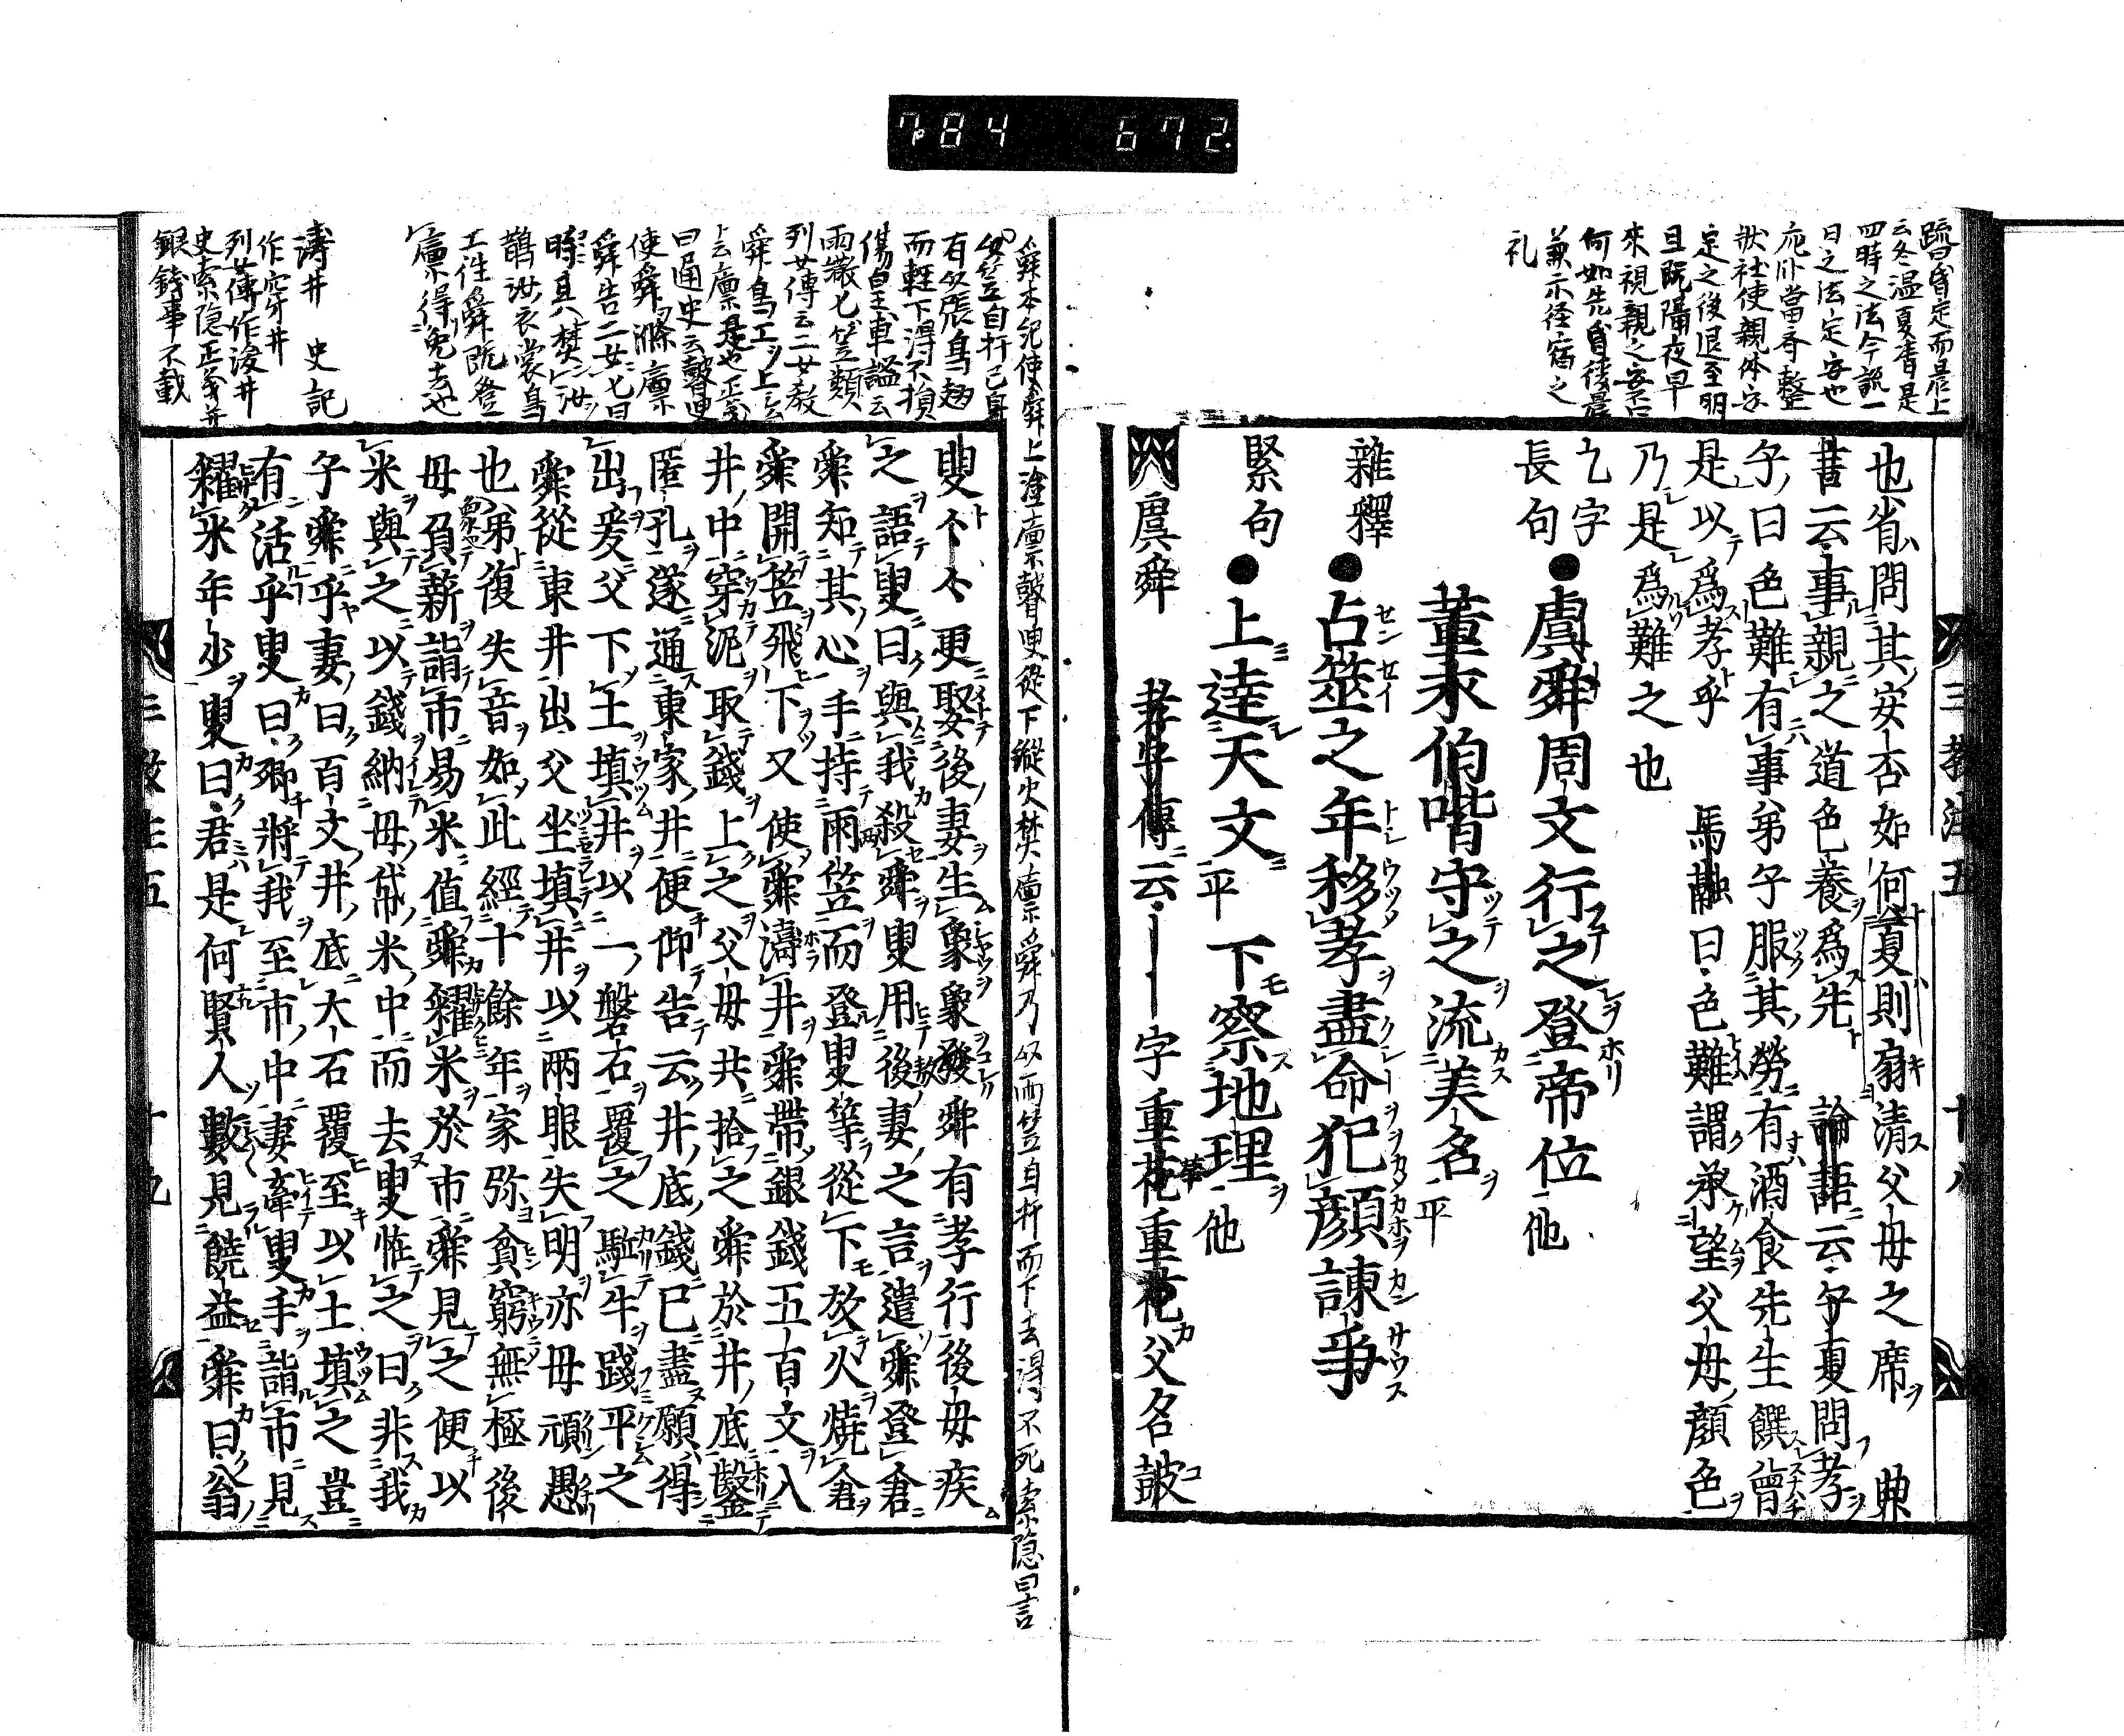 7084 672
疏昏定而晨上
云冬温夏凊是
四時之法今説一
日之法定安也
應臥當齊整
牀衽使親体安
定之後退至明
旦既隔夜早
來視親之安否
何如先昏後晨
兼示経宿之
礼
三教注五 十八
也省問其安否如何夏則扇清父母之席 典
書云事親之道色養爲先 論語云子夏問孝
子曰色難有事弟子服其勞有酒食先生饌曾
是以爲孝乎 馬融曰色難謂承望父母顔色
乃是爲難之也
七字
長句
●虞舜周文行之登帝位 他
董永伯喈守之流美名 平
雜釋
●占筮之年移孝盡命犯顔諫爭
緊句
●上達天文 平 下察地理 他
虞舜 孝子傳云 字重花重花父名鼓
舜本紀使舜上塗廩瞽叟從下縱火焚廩舜乃以兩笠自扞而下去得不死索隠曰言
以笠自扞己身
有似張鳥翅
而輕下得不損
傷皇車謐云
兩繖也笠類
列女傳云二女教
舜鳥工上
廩是也正義
曰通史云瞽叟
使舜滌廩
舜告二女二女曰
時其焚汝
鵲汝衣裳鳥
工往舜既登
廩得免去也
濤井 史記
作穿井
列女傳作浚井
史索隠正義并
銀錢事不載
叟叟更娶後妻生象象發舜有孝行後母疾
之語叟曰與我殺舜叟用後妻之言遣舜登倉
舜知其心手持兩笠而登叟等從下放火燒倉
舜開笠飛下又使舜濤井舜帶銀錢五百文入
井中穿泥取錢上之父母共拾之舜於井底鑿
匿孔遂通東家井便仰告云井底錢已盡願得
出爰父下土填井以一磐石覆之駈牛踐平之
舜從東井出父坐填井以兩眼失明亦母頑愚
也弟復失音如此經十餘年家弥貧窮無極後
母負薪詣市易米值舜糶米於市舜見之便以
米與之以錢納母帒米中而去叟恠之曰非我
子舜乎妻曰百文井底大石覆至以土填之豈
有活乎叟曰卿將我至市中妻牽叟手詣市見
糶米年少叟曰君是何賢人數見饒益舜曰翁
三教注五 十九